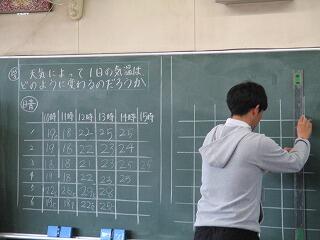 問 天気によって1日の気温は
どのように変わるのだろうか
晴
10時 11時 12時 13時 14時 15時
1 19 18 22 25 25
2 19 18 22 23 24
3 18 18 21 23 25 25
4 19 18 22 23 25
5 22 28 28
6 19 18 22 25